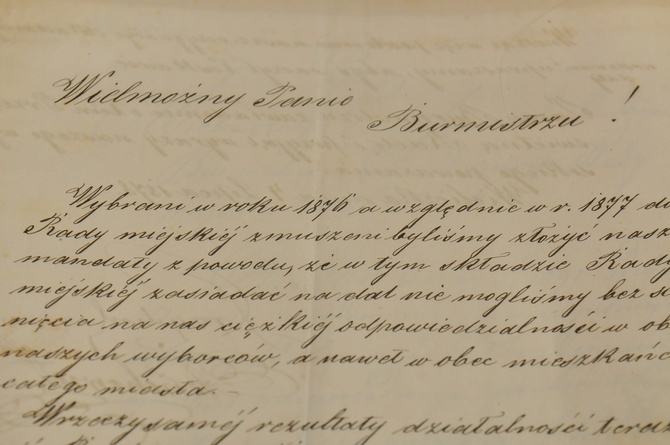 Wielmożny Panie
Burmistrzu !
Wybrani w roku 1876 a względnie w r. 1877 do
Rady miejskiéj zmuszeni byliśmy złożyć nasz
mandaty z powodu, że w tym składzie Rady
miejskiéj zasiadać na dal nie mogliśmy bez
nięcia na nas ciężkiéj odpowiedzialności w ob
naszych wyborców, a nawet w obec mieszkańc
całego miasta. –
Wrzeczysaméj rezultaty działalności teraz